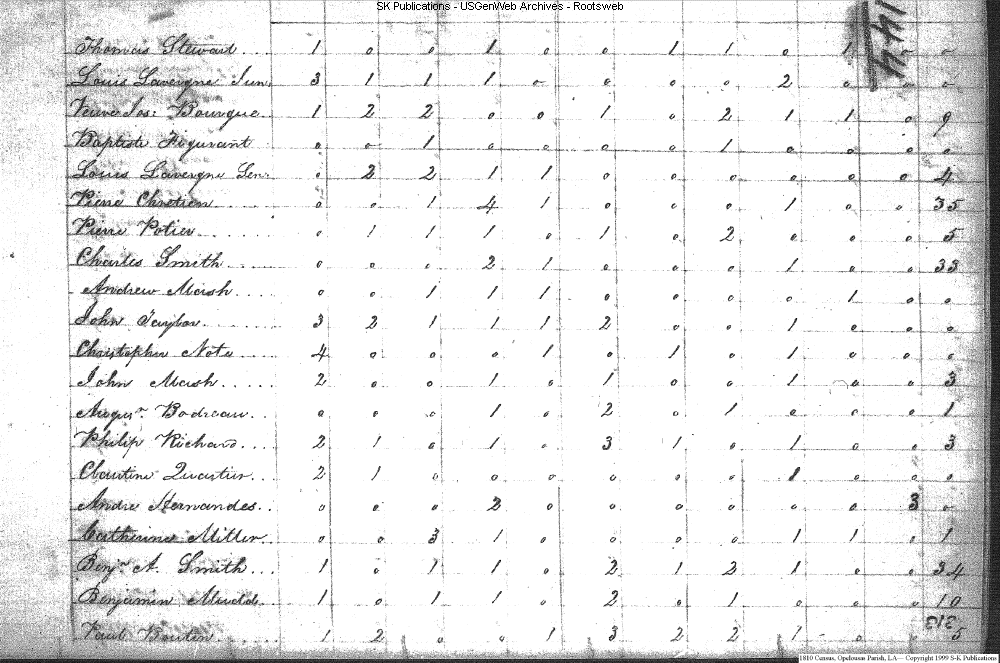 SK Publications - USGenWeb Archives - Rootsweb
144
Thomas Steward . . . 1 0 0 1 0 0 1 1 0 1 0 0
Louis Lavergne Jun. 3 1 1 1 0 0 0 0 2 0 0 0
Veuve Jos: Bourque . . 1 2 2 0 0 1 0 2 1 1 0 9
Baptiste Figurant 0 0 1 0 0 0 0 1 0 0 0 0
Louis Lavergne Sen. 0 2 2 1 1 0 0 0 0 0 0 4
Pierre Chretien . . . 0 0 1 4 1 0 0 0 1 0 0 35
Pierre Potier . . . . . 0 1 1 1 0 1 0 2 0 0 0 5
Charles Smith . . . . 0 0 0 2 1 0 0 0 1 0 0 33
Andrew Marsh . . . . 0 0 1 1 1 0 0 0 0 1 0 0
John Taylor . . . . . . . 3 2 1 1 1 2 0 0 1 0 0 0
Christopher Note . . . . 4 0 0 0 1 0 1 0 1 0 0 0
John Marsh . . . . . 2 0 0 1 0 1 0 0 1 0 0 3
Augus.n Bodreau . . . 0 0 0 1 0 2 0 1 0 0 0 1
Philip Richard . . . 2 1 0 1 0 3 1 0 1 0 0 3
2 1 0 0 0 0 0 0 1 0 0 0
Andre Hernandes . . 0 0 0 2 0 0 0 0 0 0 3 0
Catherine Miller . 0 0 3 1 0 0 0 0 1 1 0 1
Benj.n A. Smith . . . 1 0 1 1 0 2 1 2 1 0 0 34
Benjamin Mudd . 1 0 1 1 0 2 0 1 0 0 0 10
313
Paul Boutin . . . . 1 2 0 0 1 3 2 2 1 0 0 5
1810 Census, Opelousas Parish, LA -- Copyright 1999 S-K Publications